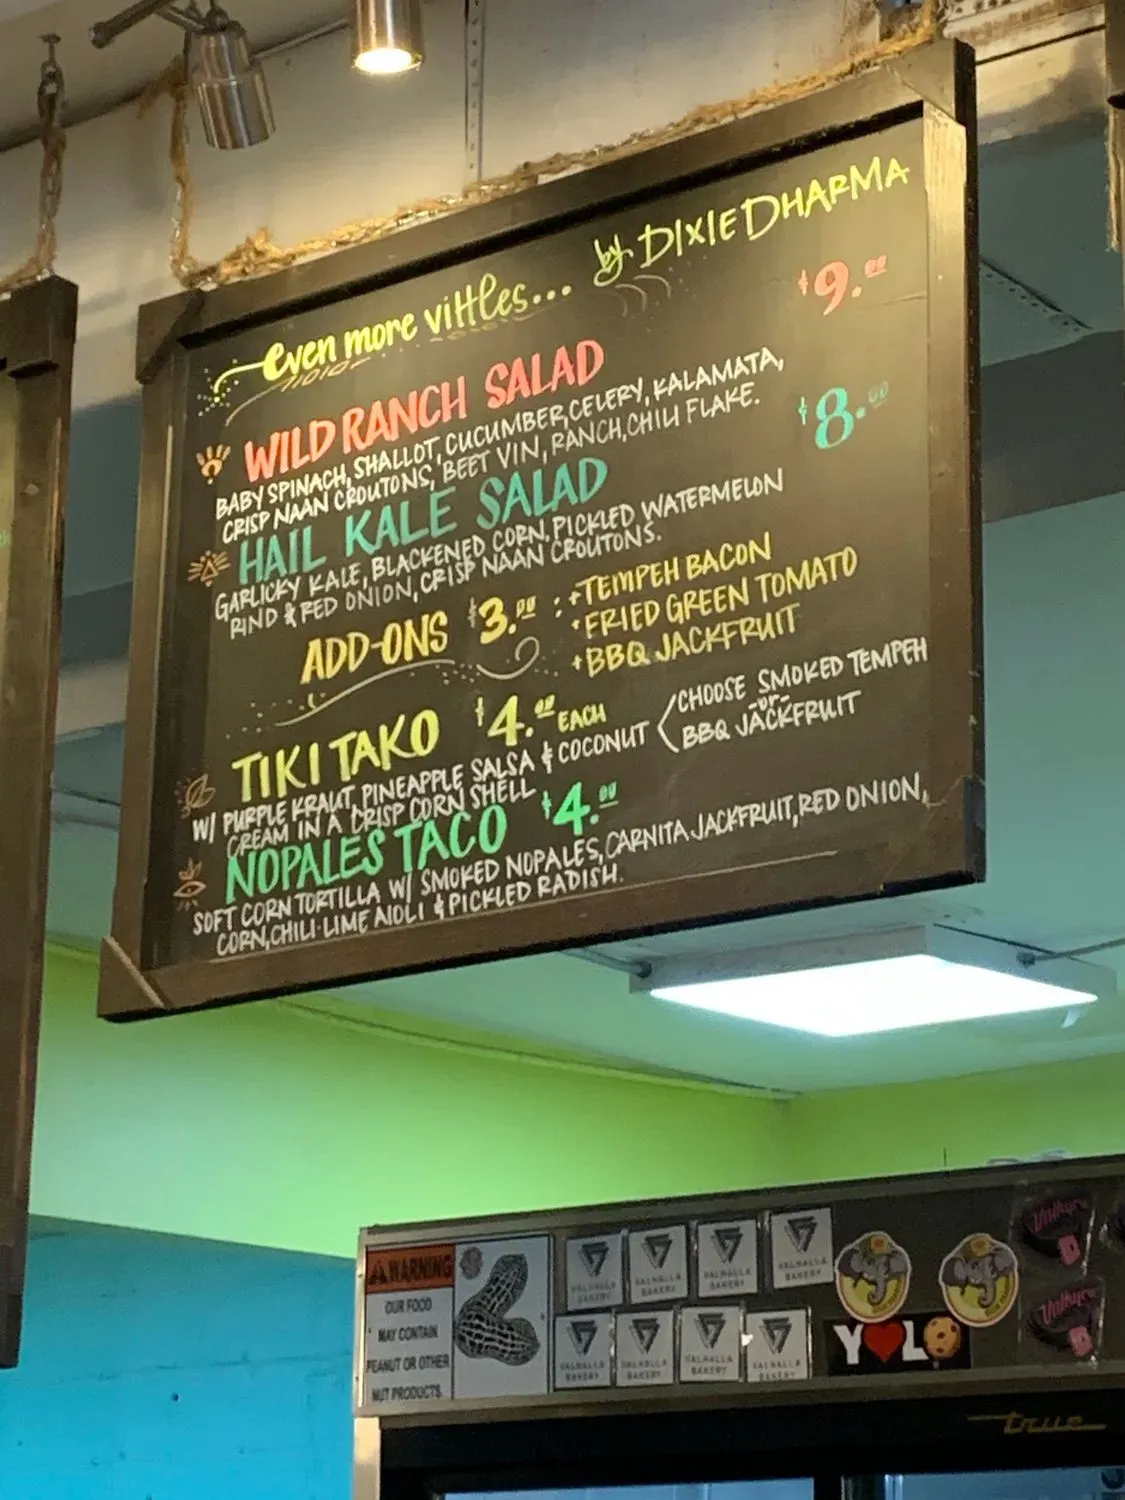 even more vittles... by DIXIE DHARMA
WILD RANCH SALAD $9.00
BABY SPINACH, SHALLOT, CUCUMBER, CELERY, KALAMATA,
CRISP NAAN CROUTONS, BEET VIN, RANCH, CHILI FLAKE.
HAIL KALE SALAD $8.00
GARLICKY KALE, BLACKENED CORN, PICKLED WATERMELON
RIND & RED ONION, CRISP NAAN CROUTONS.
ADD-ONS $3.00 : + TEMPEH BACON
+ FRIED GREEN TOMATO
+ BBQ JACKFRUIT
TIKI TAKO $4.00 EACH
W/ PURPLE KRAUT, PINEAPPLE SALSA & COCONUT
CREAM IN A CRISP CORN SHELL
CHOOSE SMOKED TEMPEH
-or-
BBQ JACKFRUIT
NOPALES TACO $4.00
SOFT CORN TORTILLA W/ SMOKED NOPALES, CARNITA JACKFRUIT, RED ONION,
CORN, CHILI-LIME AIOLI & PICKLED RADISH.
WARNING
OUR FOOD
MAY CONTAIN
PEANUT OR OTHER
NUT PRODUCTS.
VALHALLA
BAKERY
VALHALLA
BAKERY
VALHALLA
BAKERY
VALHALLA
BAKERY
VALHALLA
BAKERY
VALHALLA
BAKERY
VALHALLA
BAKERY
VALHALLA
BAKERY
Y❤LO
Valkyrie
Valkyrie
true